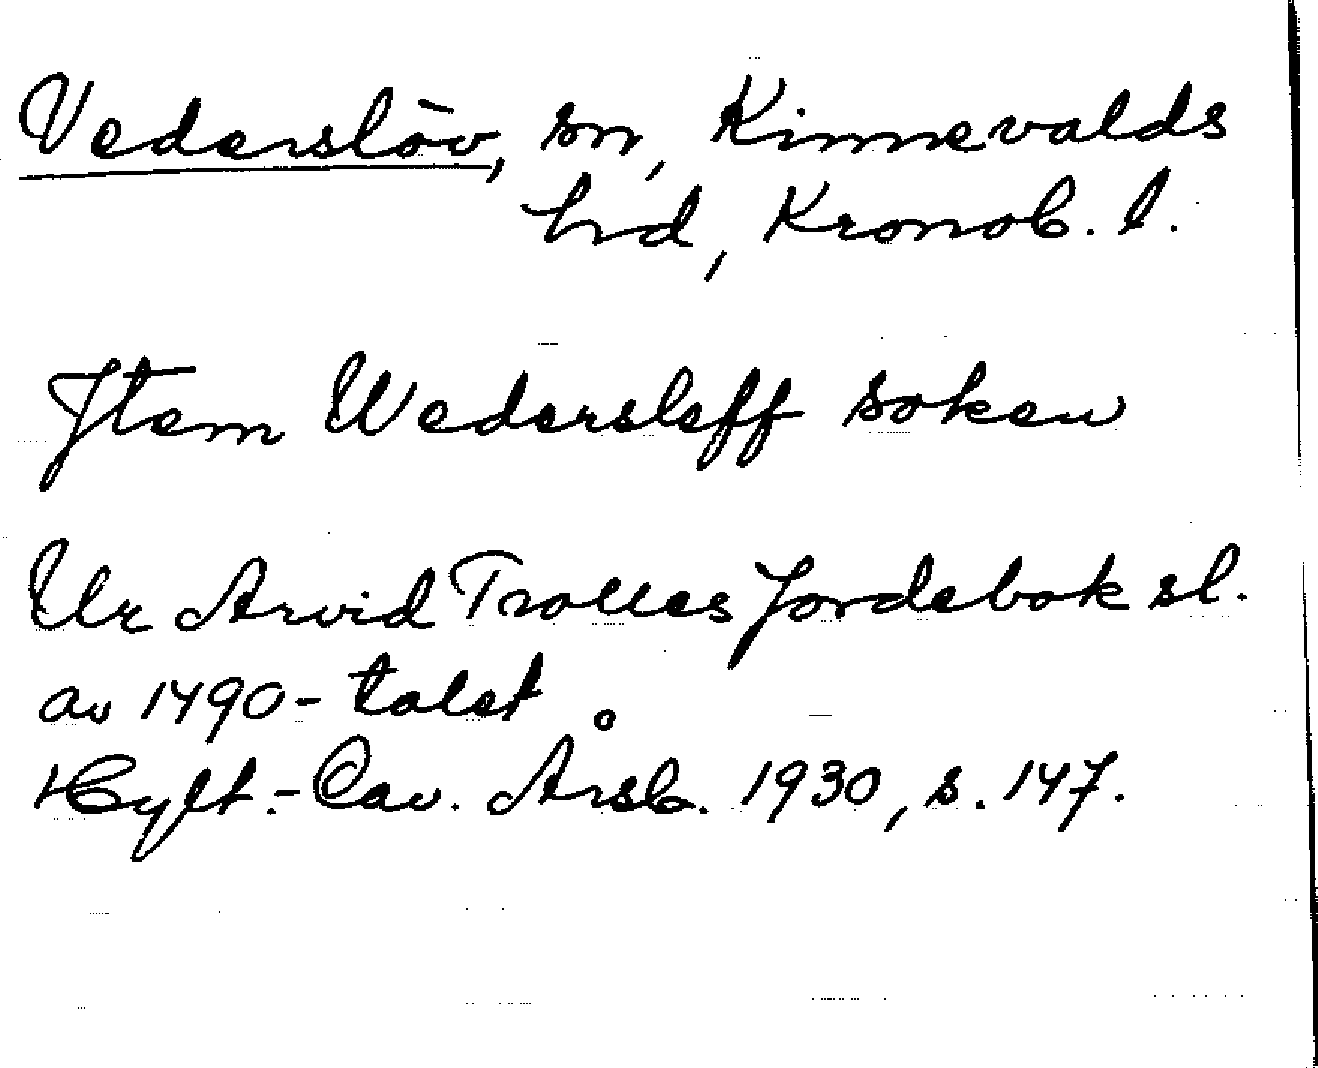 Vederslöv, sn, Kinnevalds
hrd, Kronob. l.
Jtem Wedersleff soken
Ur Arvid Trolles Jordebok sl.
av 1490-talet
Hylt.-Cav. Årsb. 1930, s. 147.